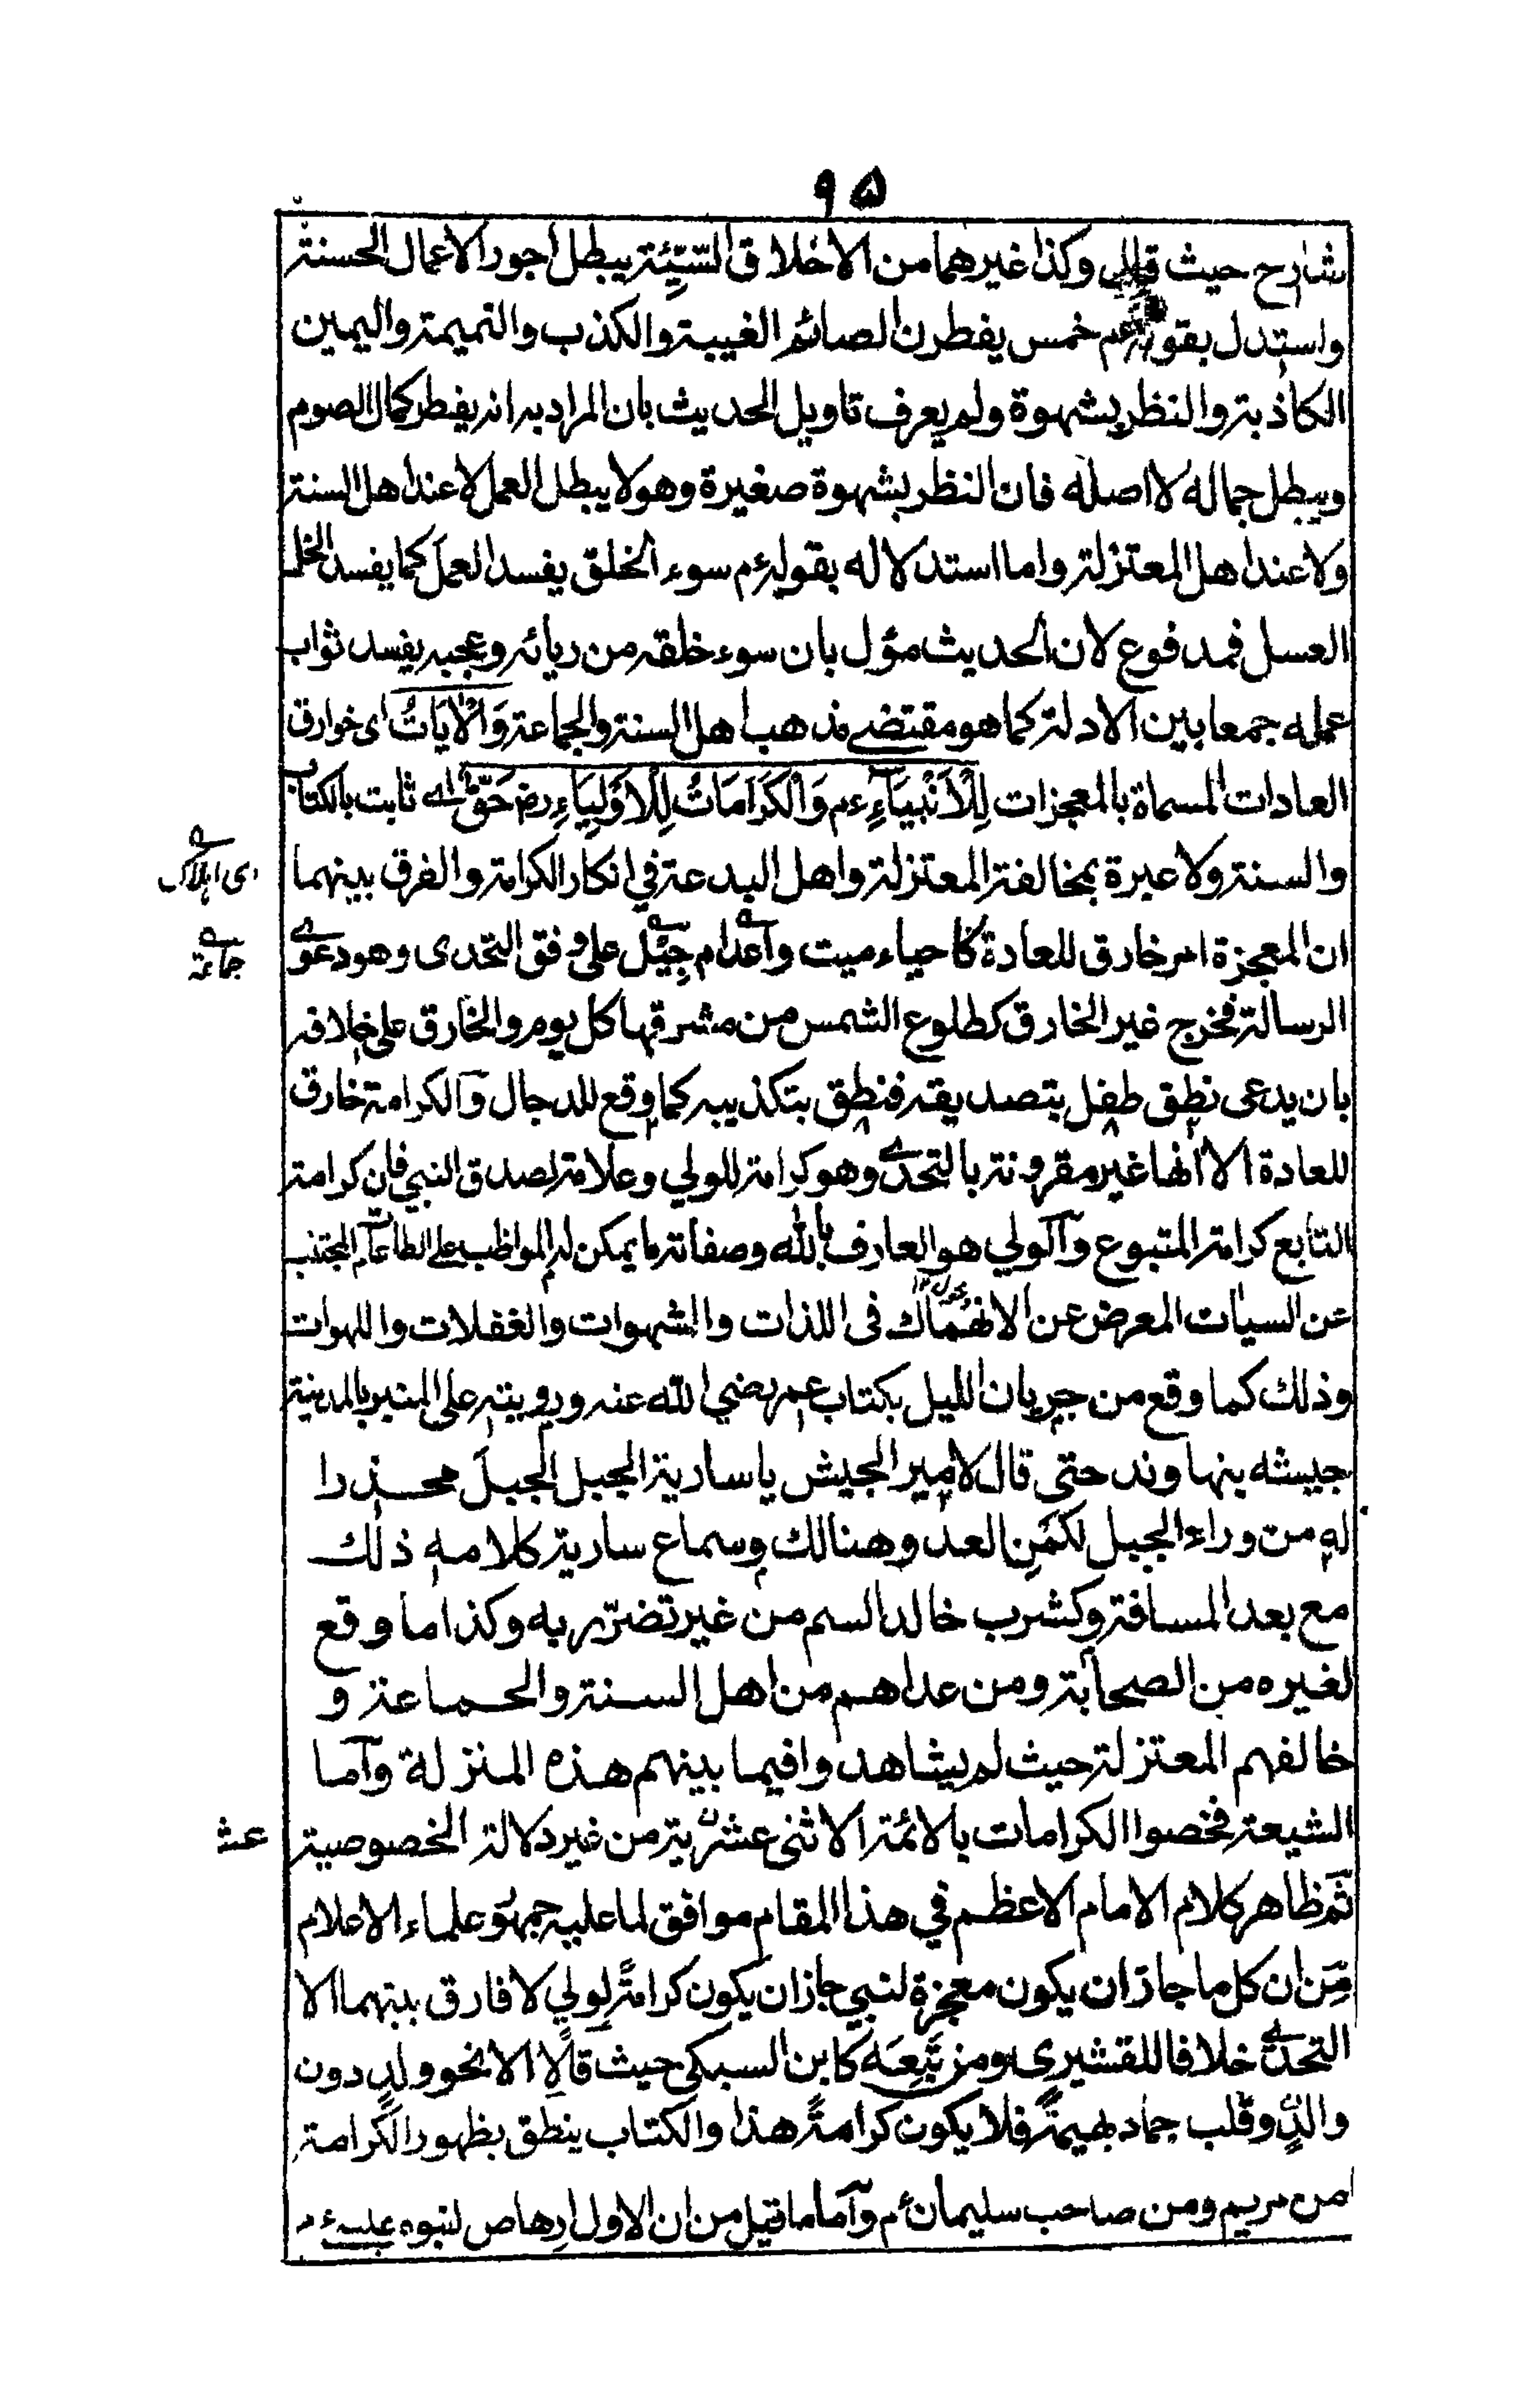 ٩٥
شارح حيث قال وكذا غيرهما من الاخلاق السَّيِّئة يبطل اجور الاعمال الحسنة
واستدل بقوله عم خمس يفطرن الصائم الغيبة والكذب والنميمة واليمين
الكاذبة والنظر بشهوة ولم يعرف تاويل الحديث بان المراد به انه يفطر كمال الصوم
ويبطل جماله لا اصله فان النظر بشهوة صغيرة وهو لا يبطل العمل لا عند اهل السنة
ولا عند اهل المعتزلة واما استدلاله بقوله ءم سوء الخلق يفسد العمل كما يفسد الخل
العسل فمدفوع لان الحديث مؤل بان سوء خلقه من ريائه وعجبه يفسد ثواب
عمله جمعا بين الادلة كما هو مقتضى مذهب اهل السنة والجماعة وَالْاٰيَاتُ اى خوارق
العادات المسماة بالمعجزات لِلْاَنْبِيَآءِ ءم وَالْكَرَامَاتُ لِلْاَوْلِيَاءِ رض حَقٌّ اى ثابت بالكتاب
والسنة ولا عبرة بمخالفة المعتزلة واهل البدعة في انكار الكرامة والفرق بينهما
ان المعجزة امر خارق للعادة كاحياء ميت واعدام جِبْل على وفق التحدى وهو دعوى
اى اهلاك
جماعة
الرسالة فخرج غير الخارق كطلوع الشمس من مشرقها كل يوم والخارق على خلافه
بان يدعى نطق طفل بتصديقه فنطق بتكذيبه كما وقع للدجال والكرامة خارق
للعادة الا انها غير مقرونة بالتحدى وهو كرامة للولي وعلامة لصدق النبي فان كرامة
التابع كرامة المتبوع والولي هو العارف بالله وصفاته ما يمكن له المواظب على الطاعات المجتنب
عن السيات المعرض عن الانهماك فى اللذات والشهوات والغفلات واللهوات
وذلك كما وقع من جريان النيل بكتاب عمر رضي الله عنه ورويته على المنبر بالمدينة
جيشه بنهاوند حتى قال لامير الجيش يا سارية الجبل الجبلَ محذرا
له من وراء الجبل لكَمَنِ العدو هنالك وسماع سارية كلامه ذلك
مع بعد المسافة وكشرب خالد السم من غير تضرّر به وكذا ما وقع
لغيره من الصحابة ومن عداهم من اهل السنة والجماعة و
خالفهم المعتزلة حيث لم يشاهدوا فيما بينهم هذه المنزلة واما
الشيعة فخصوا الكرامات بالائمة الاثنى عشرية من غير دلالة الخصوصية
عش
ثم ظاهر كلام الامام الاعظم في هذا المقام موافق لما عليه جمهور علماء الاعلام
مِن ان كل ما جاز ان يكون معجزة لنبي جاز ان يكون كرامةً لولي لا فارق بينهما الا
التحدى خلافا للقشيرى ومن تَبِعَه كابن السبكي حيث قالا الا نحو ولد دون
والدٍ وقلب جماد بهيمةً فلا يكون كرامةً هذا والكتاب ينطق بظهور الكرامة
من مريم ومن صاحب سليمان ءم واما ما قيل من ان الاول ارهاص لنبوة عيسىٰ ءم